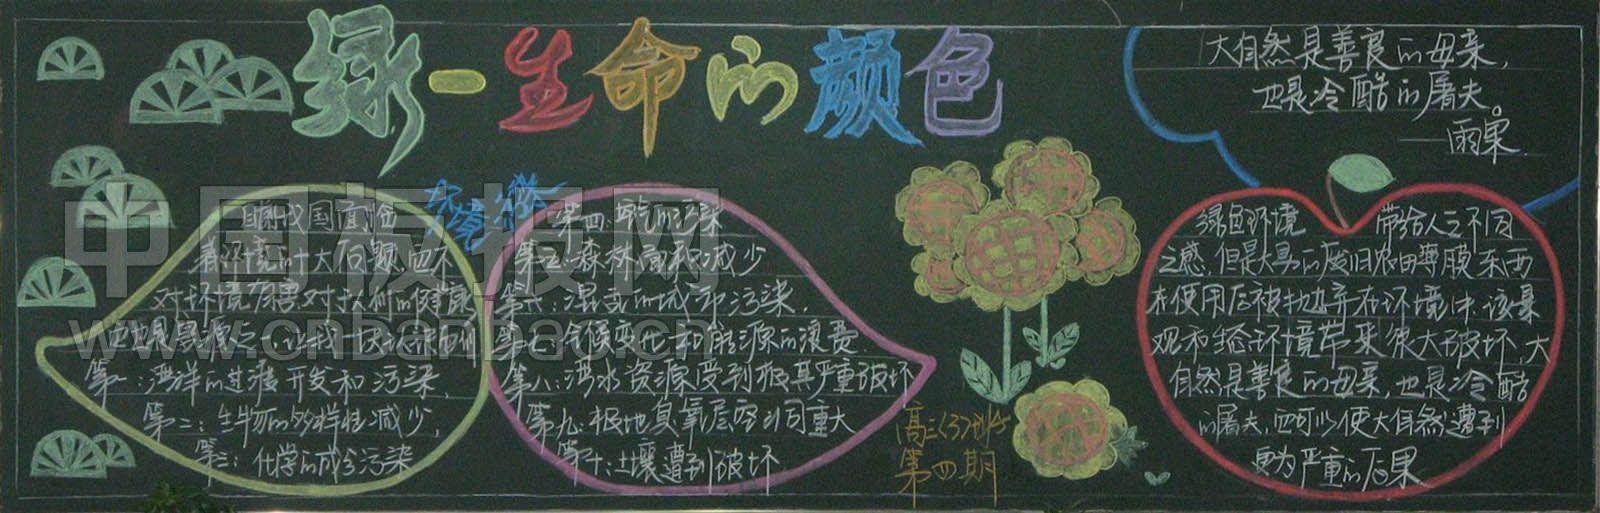 绿一生命的颜色
大自然是善良的母亲,
也是冷酷的屠夫。
——雨果
环境
中国板报网
www.cnbanbao.cn
着环境的十大问题,
对环境有害对
第一:海洋的过渡开发和污染,
第二:生物的多样性减少,
第三:化学的成分污染
第四:空气的污染
第五:森林面积减少
第六:混乱的城市污染,
第七:气候变化和能源的浪费.
第八:淡水资源受到极其严重破坏
第九:极地臭氧层空洞重大
第十:土壤遭到破坏
高三(3)班
第四期
绿色环境 带给人三不同
之感,但是大马的废旧农田薄膜东西
在使用后被抛弃在环境中,该景
观和生态环境带来很大破坏,大
自然是善良的母亲,也是冷酷
的屠夫,也可少使大自然遭到
更为严重的后果